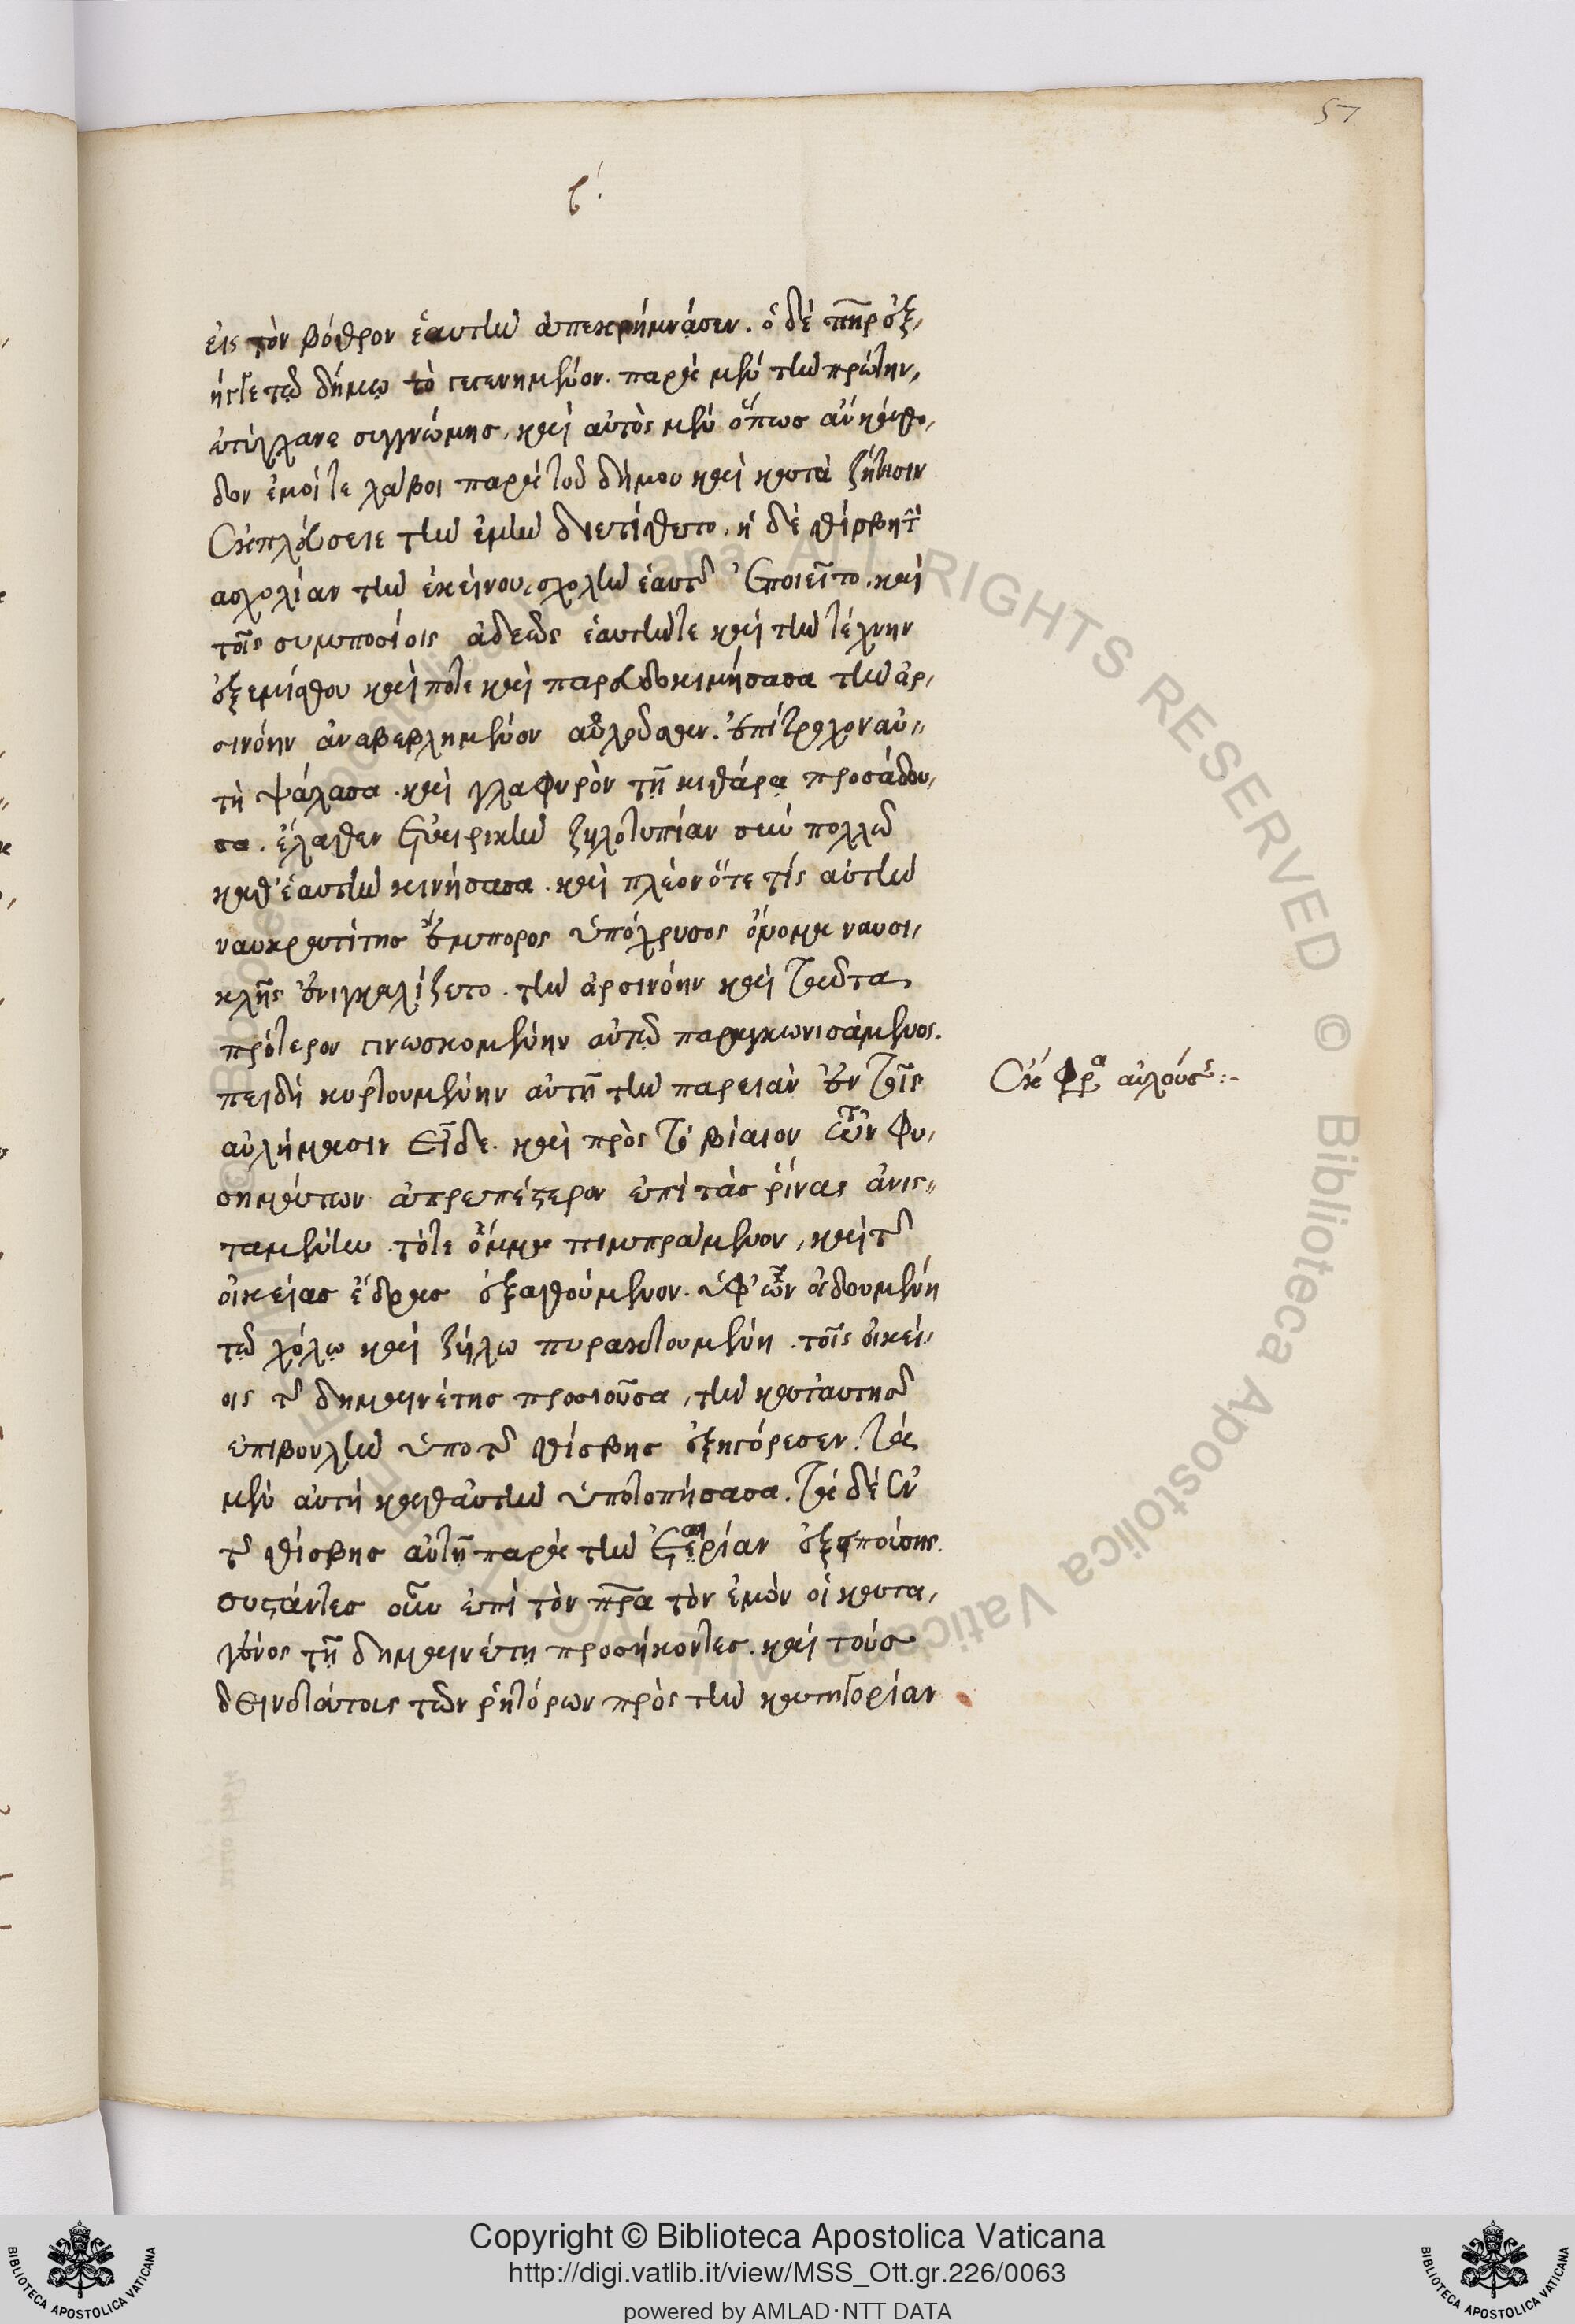 57
β'.
εἰς τὸν βόθρον ἑαυτὴν ἀπεκρήμνασεν. ὁ δὲ πῆρ ἐξ,
ήγγελε τῷ δήμῳ τὸ γεγενημένον. παρὰ μὲν τὴν πρώτην,
ἐτύγχανε συγγνώμης, καὶ αὐτὸς μὲν ὅπως ἂν κάθο,
δον ἐμοί τε λάβοι παρὰ τοῦ δήμου καὶ κατὰ ζήτησιν
ἐκπλεύσειε τὴν ἐμὴν διετίθετο. ἡ δὲ θίσβη τὴν
ασχολίαν τὴν ἐκείνου, σχολὴν ἑαυτῆς ἐποιεῖτο. καὶ
τοῖς συμποσίοις ἀδεῶς ἑαυτήν τε καὶ τὴν τέχνην
ἐξεμίσθου καί ποτε καὶ παρευδοκιμήσασα τὴν ἀρ,
σινόην ἀναβεβλημένον αὐλοῦσαν. ἐπίτροχον αὐ,,
τὴ ψάλασα. καὶ γλαφυρὸν τῇ κιθάρᾳ προσάδου,
σα. ἔλαθεν ἑταιρικὴν ζηλοτυπίαν σὺν πολλῷ
καθ' ἑαυτὴν κινήσασα. καὶ πλέον ὅτε τίς αὐτὴν
ναυκρατίτης ἔμπορος ὑπόχρυσος ὄνομα ναυσι,
κλῆς ἐνηγκαλίζετο. τὴν ἀρσινόην καὶ ταῦτα
πρότερον γινωσκομένην αὐτῷ παραγκωνισάμενος.
πειδὴ κυρτουμένην αὐτῇ τὴν παρειὰν ἐν τοῖς
αὐλήμασιν εἶδε. καὶ πρὸς τὸ βίαιον τῶν φυ,
σημάτων ἀπρεπέστερον ἐπὶ τὰς ῥῖνας ἀνισ,,
ταμένην. τό τε ὄμμα πιμπράμενον, καὶ τῆς
οἰκείας ἕδρας ἐξαιθούμενον. ὑφ' ὧν οἰδουμένη
τῷ χόλῳ καὶ ζήλω πυρακτουμένη. τοῖς οἰκεί,
οις τῆς δημαινέτης προσιοῦσα, τὴν κατ' αυτῆς
ἐπιβουλὴν ὑπο τῆς θίσβης ἐξηγόρευσεν. τὰ
μὲν αὐτὴ καθ' αὑτὴν ὑποτοπήσασα. τὰ δὲ ἐκ
τῆς θίσβης αὐτῇ παρὰ τὴν ἑταιρίαν ἐξειποίσης.
συστάντες οὖν ἐπὶ τὸν πρα τὸν ἐμὸν οἱ κατα,
γένος τῇ δημαινέτῃ προσήκοντες. καὶ τοὺς
δεινοτάτους τῶν ῥητόρων πρὸς τὴν κατηγορίαν
ἐκφρα αὐλούσης:-
© Biblioteca Apostolica Vaticana ALL RIGHTS RESERVED © Biblioteca Apostolica Vaticana
Copyright © Biblioteca Apostolica Vaticana
http://digi.vatlib.it/view/MSS_Ott.gr.226/0063
powered by AMLAD·NTT DATA
BIBLIOTECA APOSTOLICA VATICANA
BIBLIOTECA APOSTOLICA VATICANA